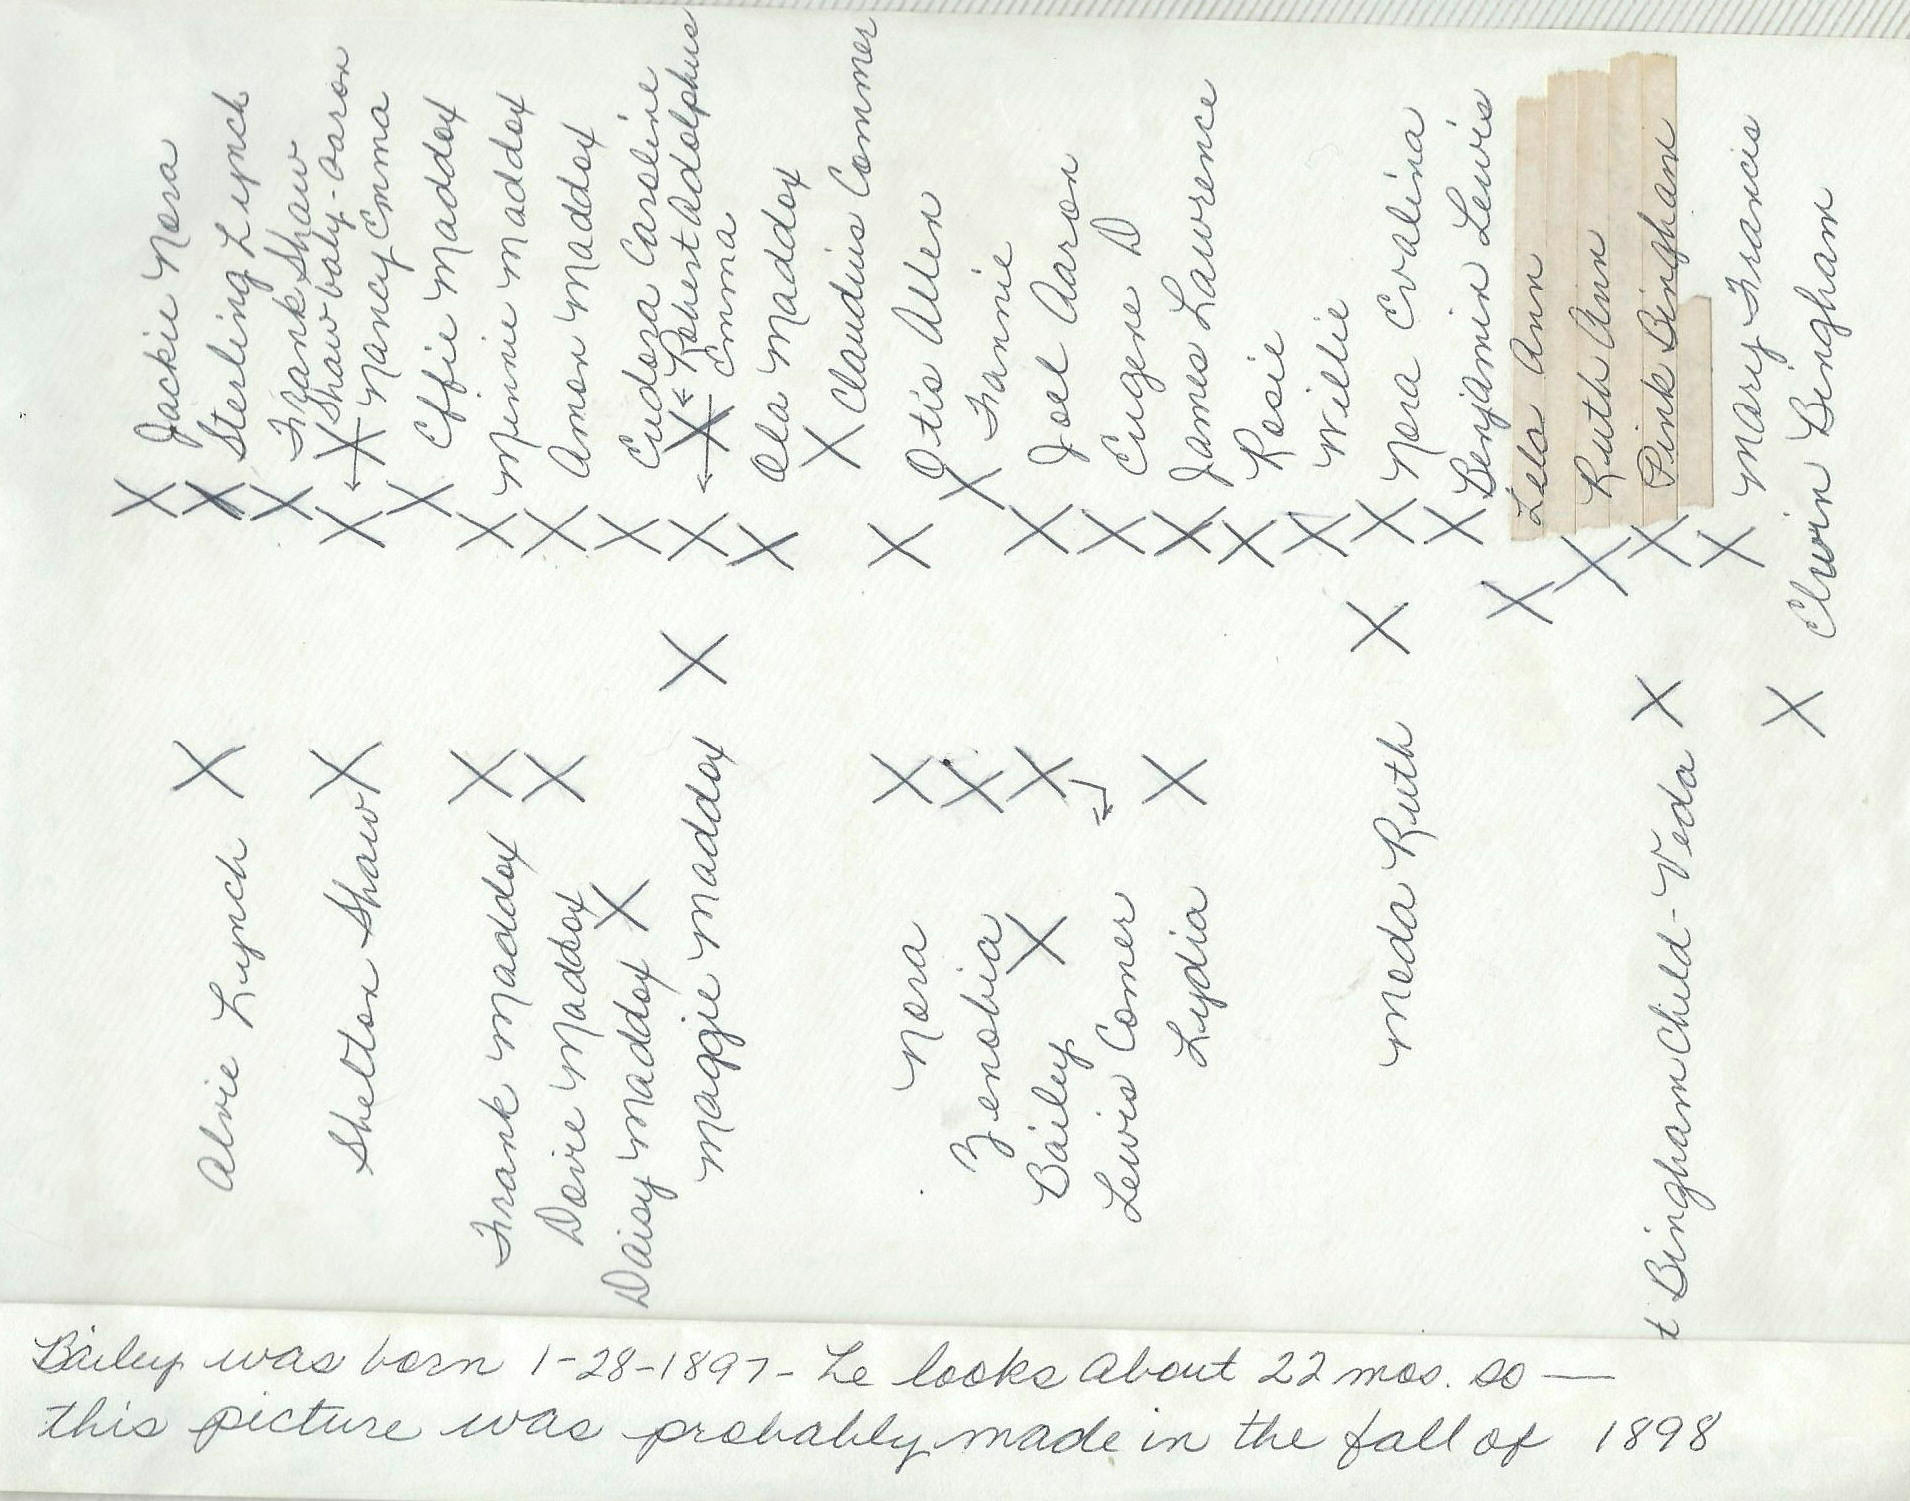 Jackie Nora
Sterling Lynch
Frank Shaw
Shaw baby - Aaron
Nancy Emma
Effie Maddox
Minnie Maddox
Amon Maddox
Eudora Caroline
Robert Adolphus
Emma
Ola Maddox
Claudius Commer
Otis Allen
Fannie
Joel Aaron
Eugene D
James Lawrence
Rosie
Willie
Nora Evalina
Benjamin Lewis
Lela Ann
Ruth Ann
Pink Bingham
Mary Francis
Elwin Bingham
Alvie Lynch
Shelton Shaw
Frank Maddox
Dovie Maddox
Daisy Maddox
Maggie Maddox
Nora
Zenobia
Bailey
Lewis Comer
Lydia
Meda Ruth
t Bingham Child - Veda
Bailey was born 1-28-1897 - he looks about 22 mos. so —
this picture was probably made in the fall of 1898